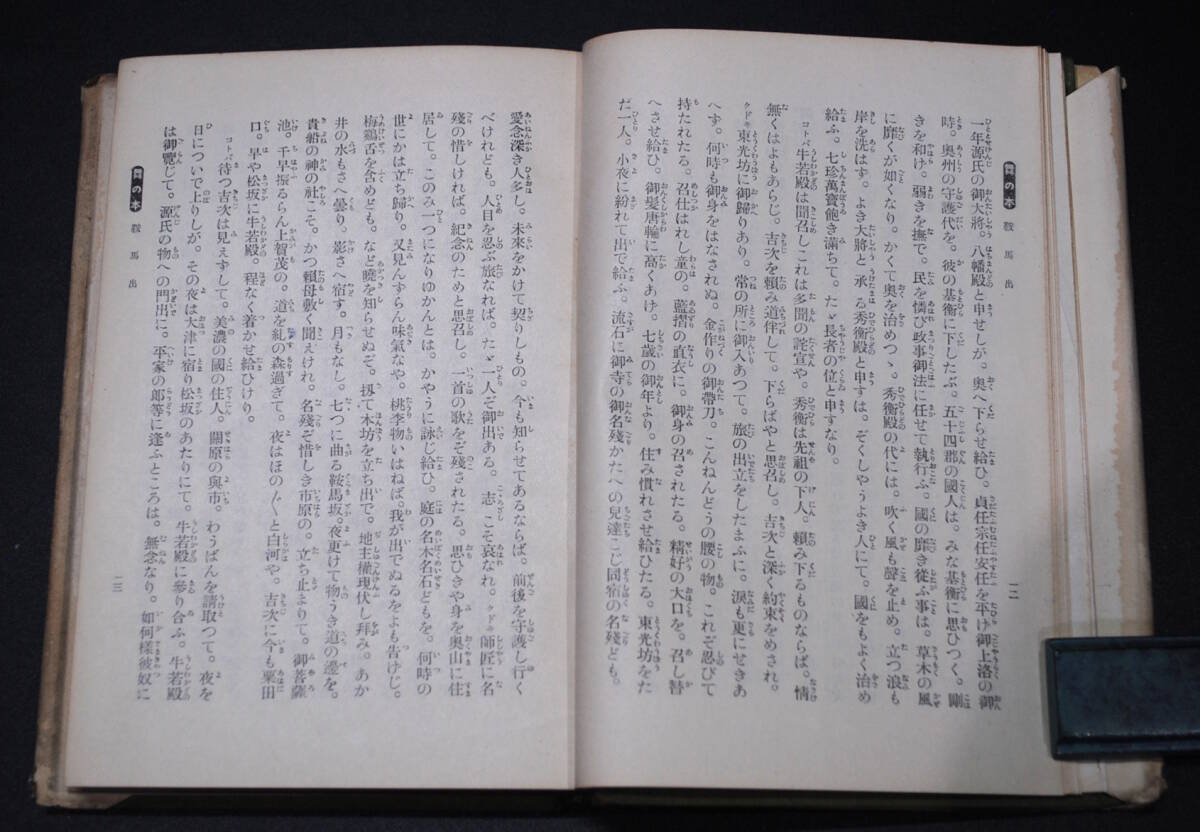 舞の本 鞍馬出
一二
一年源氏の御大將。八幡殿と申せしが。奥へ下らせ給ひ。貞任宗任安任を平げ御上洛の御
時。奥州の守護代を。彼の基衡に下したぶ。五十四郡の國人は。みな基衡に思ひつく。剛
きを和げ。弱きを撫で。民を憐び政事御法に任せて執行ふ。國の靡き從ふ事は。草木の風
に靡くが如くなり。かくて奥を治めつゝ。秀衡殿の代には。吹く風も聲を止め。立つ浪も
岸を洗はす。よき大將と承る秀衡殿と申すは。ぞくしやうよき人にて。國をもよく治め
給ふ。七珍萬寶飽き滿ちて。たゞ長者の位と申すなり。
コトバ牛若殿は聞召しこれは多聞の詫宣や。秀衡は先祖の下人。賴み下るものならば。情
無くはよもあらじ。吉次を賴み道伴して。下らばやと思召し。吉次と深く約束をめされ。
クドキ東光坊に御歸りあり。常の所に御入あつて。旅の出立をしたまふに。淚も更にせきあ
へす。何時も御身をはなされぬ。金作りの御帶刀。こんねんどうの腰の物。これぞ忍びて
持たれたる。召仕はれし童の。藍摺の直衣に。御身の召されたる。精好の大口を。召し替
へさせ給ひ。御髮唐輪に高くあけ。七歲の御年より。住み慣れさせ給ひたる。東光坊をた
だ一人。小夜に紛れて出で給ふ。流石に御寺の御名殘かたへの兒達こじ同宿の名殘ども。
愛念深き人多し。未來をかけて契りしもの。今も知らせてあるならば。前後を守護し行く
べけれども。人目を忍ぶ旅なれば。たゞ一人ぞ御出ある。志こそ哀なれ。クドキ師匠に名
殘の惜しければ。紀念のためと思召し。一首の歌をぞ殘されたる。思ひきや身を奥山に住
居して。このみ一つになりゆかんとは。かやうに詠じ給ひ。庭の名木名石どもを。何時の
世にかは立ち歸り。又見んずらん味氣なや。桃李物いはねば。我が出でぬるをよも告げじ。
梅鷄舌を含めども。など曉を知らせぬぞ。扨て本坊を立ち出で。地主權現伏し拜み。あか
井の水もさへ曇り。影さへ宿す。月もなし。七つに曲る鞍馬坂。夜更けて物うき道の邊を。
貴船の神の社こそ。かつ賴母敷く聞えけれ。名殘ぞ惜しき市原の。立ち止よりて。御菩薩
池。千早振るらん上賀茂の。道を紀の森過ぎて。夜はほの〴〵と白河や。吉次に今も粟田
口。早や松坂に牛若殿。程なく着かせ給ひけり。
コトバ待つ吉次は見えずして。美濃の國の住人。關原の與市。わうばんを請取つて。夜を
日についで上りしが。その夜は大津に宿り松坂のあたりにて。牛若殿に參り合ふ。牛若殿
は御覽じて。源氏の物への門出に。平家の郞等に逢ふところは。無念なり。如何樣彼奴に
舞の本 鞍馬出
一三